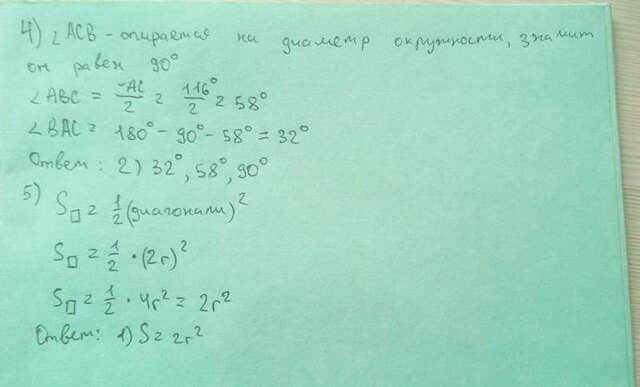 4) ∠ACB - опирается на диаметр окружности, значит
он равен 90°
∠ABC = ◡AC/2 = 116°/2 = 58°
∠BAC = 180° - 90° - 58° = 32°
Ответ: 2) 32°, 58°, 90°
5) S□ = 1/2 (диагонали)²
S□ = 1/2 · (2r)²
S□ = 1/2 · 4r² = 2r²
Ответ: 1) S = 2r²